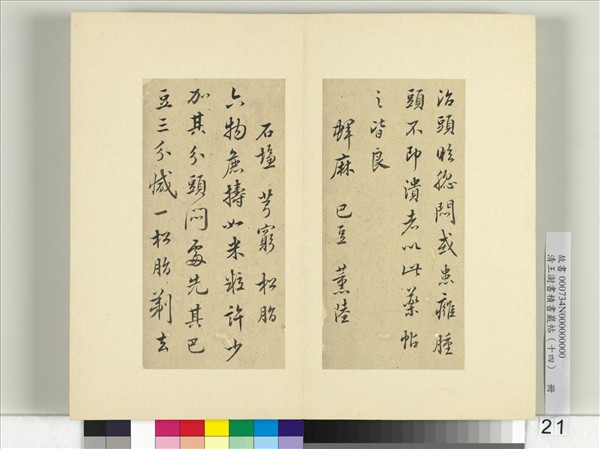 治頭眩總悶或患雍腫
頭不即潰者以此藥帖
之皆良
蜱麻 巴豆 薰陸
石塩 芎窮 松脂
六物庶擣如米粒許少
加其分頭悶處先其巴
豆三分減一松脂剃去
故書 000734N000000000
清王澍書積書巖帖（十四） 冊
21